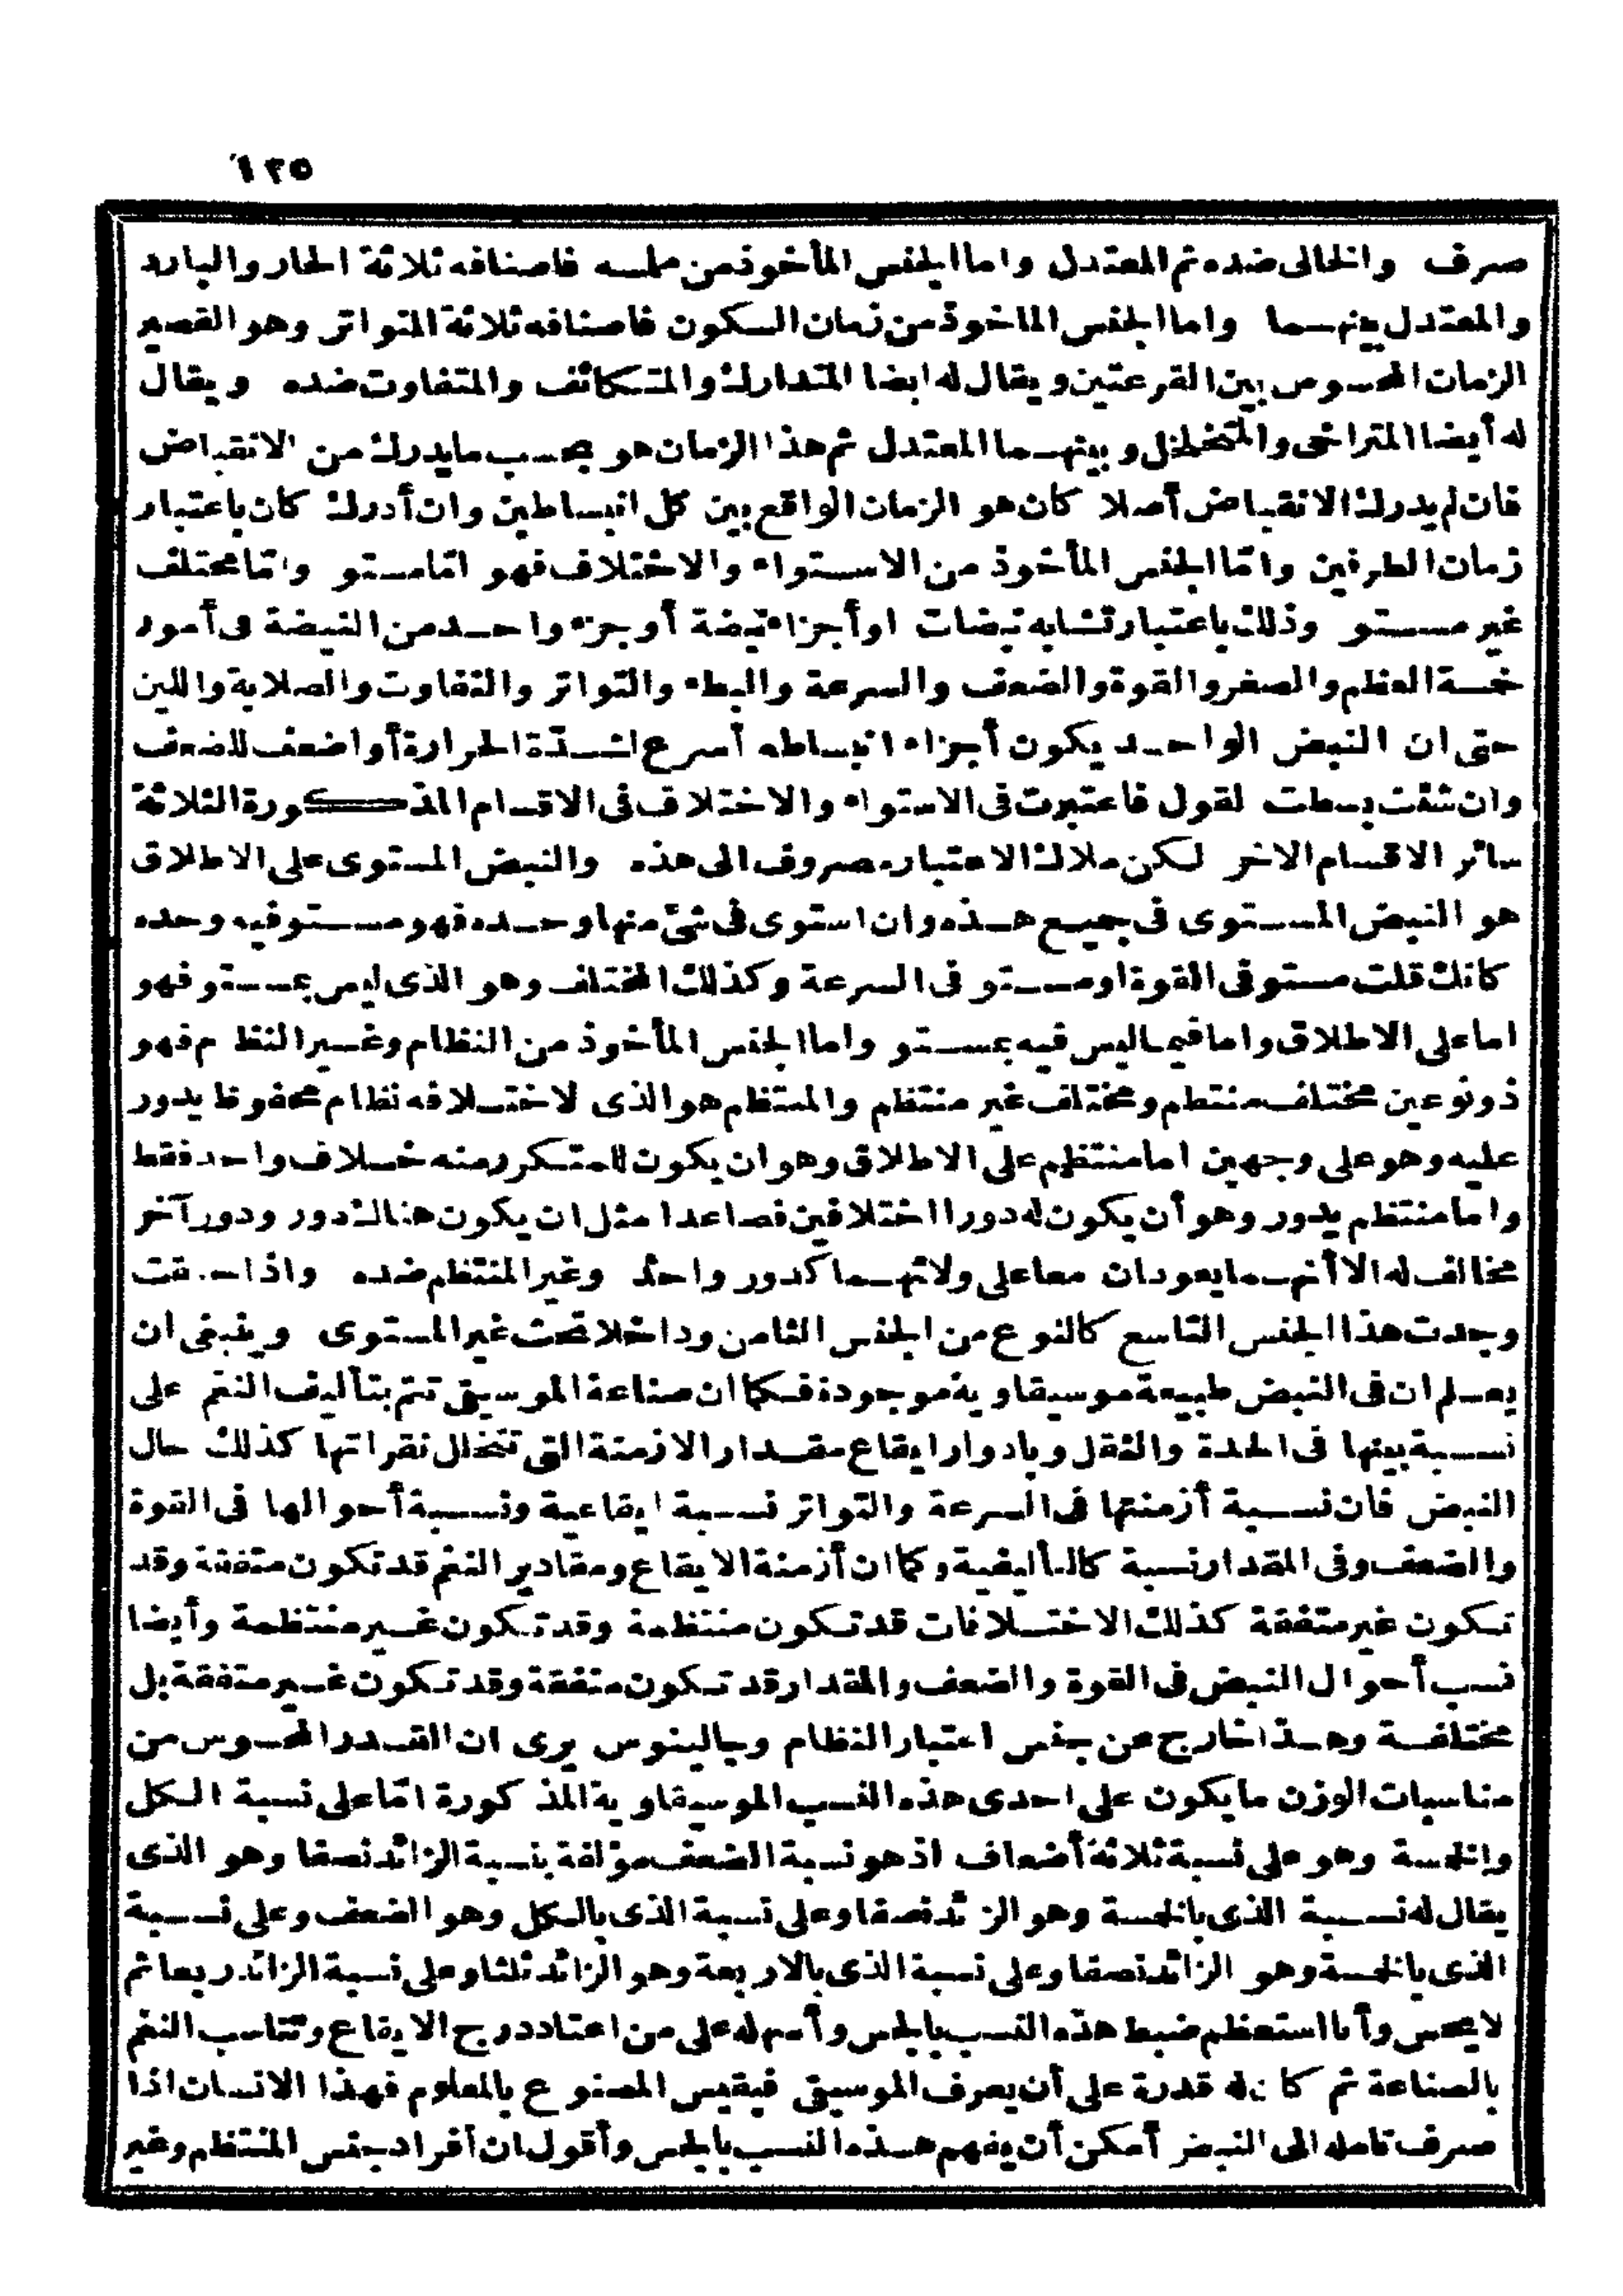 ١٢٥
صرف والخالى ضده ثم المعتدل واما الجنس المأخوذ من ملمسه فاصنافه ثلاثة الحار والبارد
والمعتدل بينهما واما الجنس الماخوذ من زمان السكون فاصنافه ثلاثة المتواتر وهو القصير
الزمان المحسوس بين القرعتين ويقال له ايضا المتدارك والمتكاثف والمتفاوت ضده ويقال
له أيضا المتراخى والمتخلخل وبينهما المعتدل ثم هذا الزمان هو بحسب ما يدرك من الانقباض
فان لم يدرك الانقباض أصلا كان هو الزمان الواقع بين كل انبساطين وان أدرك كان باعتبار
زمان الطرفين وامّا الجنس المأخوذ من الاستواء والاختلاف فهو امّا مستو وامّا مختلف
غير مستو وذلك باعتبار تشابه نبضات او أجزاء نبضة أو جزء واحد من النبضة فى أمور
خمسة العظم والصغر والقوة والضعف والسرعة والبطء والتواتر والتفاوت والصلابة واللين
حتى ان النبض الواحد يكون أجزاء انبساطه أسرع لشدّة الحرارة أو اضعف للضعف
وان شئت بسطت القول فاعتبرت فى الاستواء والاختلاف فى الاقسام المذكورة الثلاثة
سائر الاقسام الاخر لكن ملاك الاعتبار مصروف الى هذه والنبض المستوى على الاطلاق
هو النبض المستوى فى جميع هذه وان استوى فى شئ منها وحده فهو مستو فيه وحده
كانك قلت مستو فى القوة او مستو فى السرعة وكذلك المختلف وهو الذى ليس بمستو فهو
اما على الاطلاق واما فيما ليس فيه بمستو واما الجنس المأخوذ من النظام وغير النظام فهو
ذو نوعين مختلف منتظم ومختلف غير منتظم والمنتظم هو الذى لاختلافه نظام محفوظ يدور
عليه وهو على وجهين اما منتظم على الاطلاق وهو ان يكون للمتكرر منه خلاف واحد فقط
واما منتظم يدور وهو أن يكون له دورا اختلافين فصاعدا مثل ان يكون هناك دور ودور آخر
مخالف له الا أنهما يعودان معا على ولائهما كدور واحد وغير المنتظم ضده واذا حققت
وجدت هذا الجنس التاسع كالنوع من الجنس الثامن وداخلا تحت غير المستوى وينبغى ان
يعلم ان فى النبض طبيعة موسيقاوية موجودة فكما ان صناعة الموسيقى تتم بتأليف النغم على
نسبة بينها فى الحدة والثقل وبادوار ايقاع مقدار الازمنة التى تتخلل نقراتها كذلك حال
النبض فان نسبة أزمنتها فى السرعة والتواتر نسبة ايقاعية ونسبة أحوالها فى القوة
والضعف وفى المقدار نسبة كالتأليفية وكما ان أزمنة الايقاع ومقادير النغم قد تكون متفقة وقد
تكون غير متفقة كذلك الاختلافات قد تكون منتظمة وقد تكون غير منتظمة وأيضا
نسب أحوال النبض فى القوة والضعف والمقدار قد تكون متفقة وقد تكون غير متفقة بل
مختلفة وهذا خارج عن جنس اعتبار النظام وجالينوس يرى ان القدر المحسوس من
مناسبات الوزن ما يكون على احدى هذه النسب الموسيقاوية المذكورة امّا على نسبة الكل
والخمسة وهو على نسبة ثلاثة أضعاف اذ هو نسبة الضعف مؤلفة بنسبة الزائد نصفا وهو الذى
يقال له نسبة الذى بالخمسة وهو الزائد نصفا وعلى نسبة الذى بالكل وهو الضعف وعلى نسبة
الذى بالخمسة وهو الزائد نصفا وعلى نسبة الذى بالاربعة وهو الزائد ثلثا وعلى نسبة الزائد ربعا ثم
لا يحس وأنا استعظم ضبط هذه النسب بالجس وأسهله على من اعتاد درج الايقاع وتناسب النغم
بالصناعة ثم كان له قدرة على أن يعرف الموسيقى فيقيس المصنوع بالمعلوم فهذا الانسان اذا
صرف تامله الى النبض أمكن أن يفهم هذه النسب بالجس وأقول ان افراد جنس المنتظم وغير